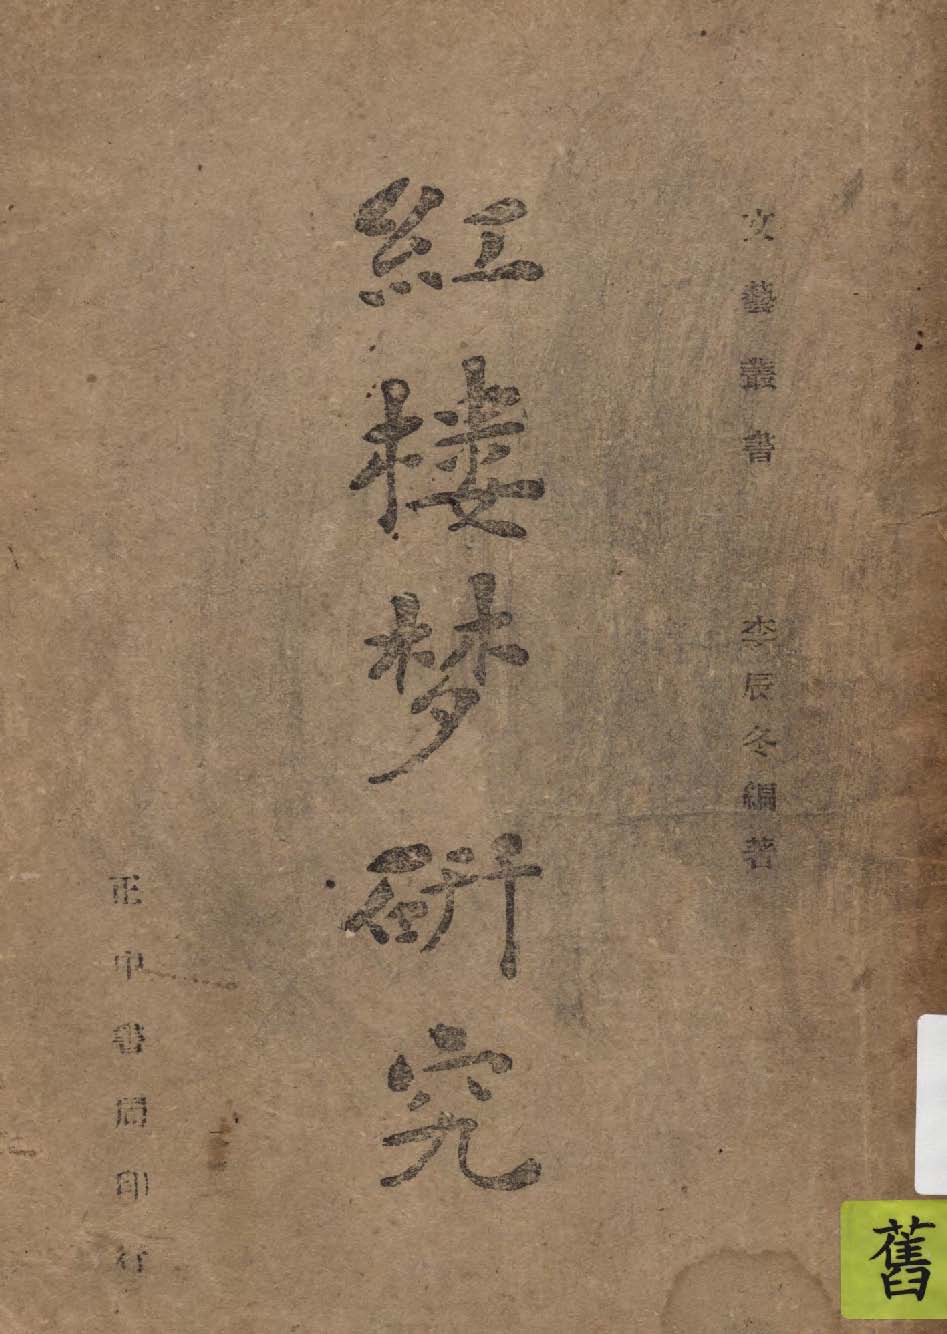 文藝叢書 李辰冬編著
紅楼梦研究
正中書局印行
舊